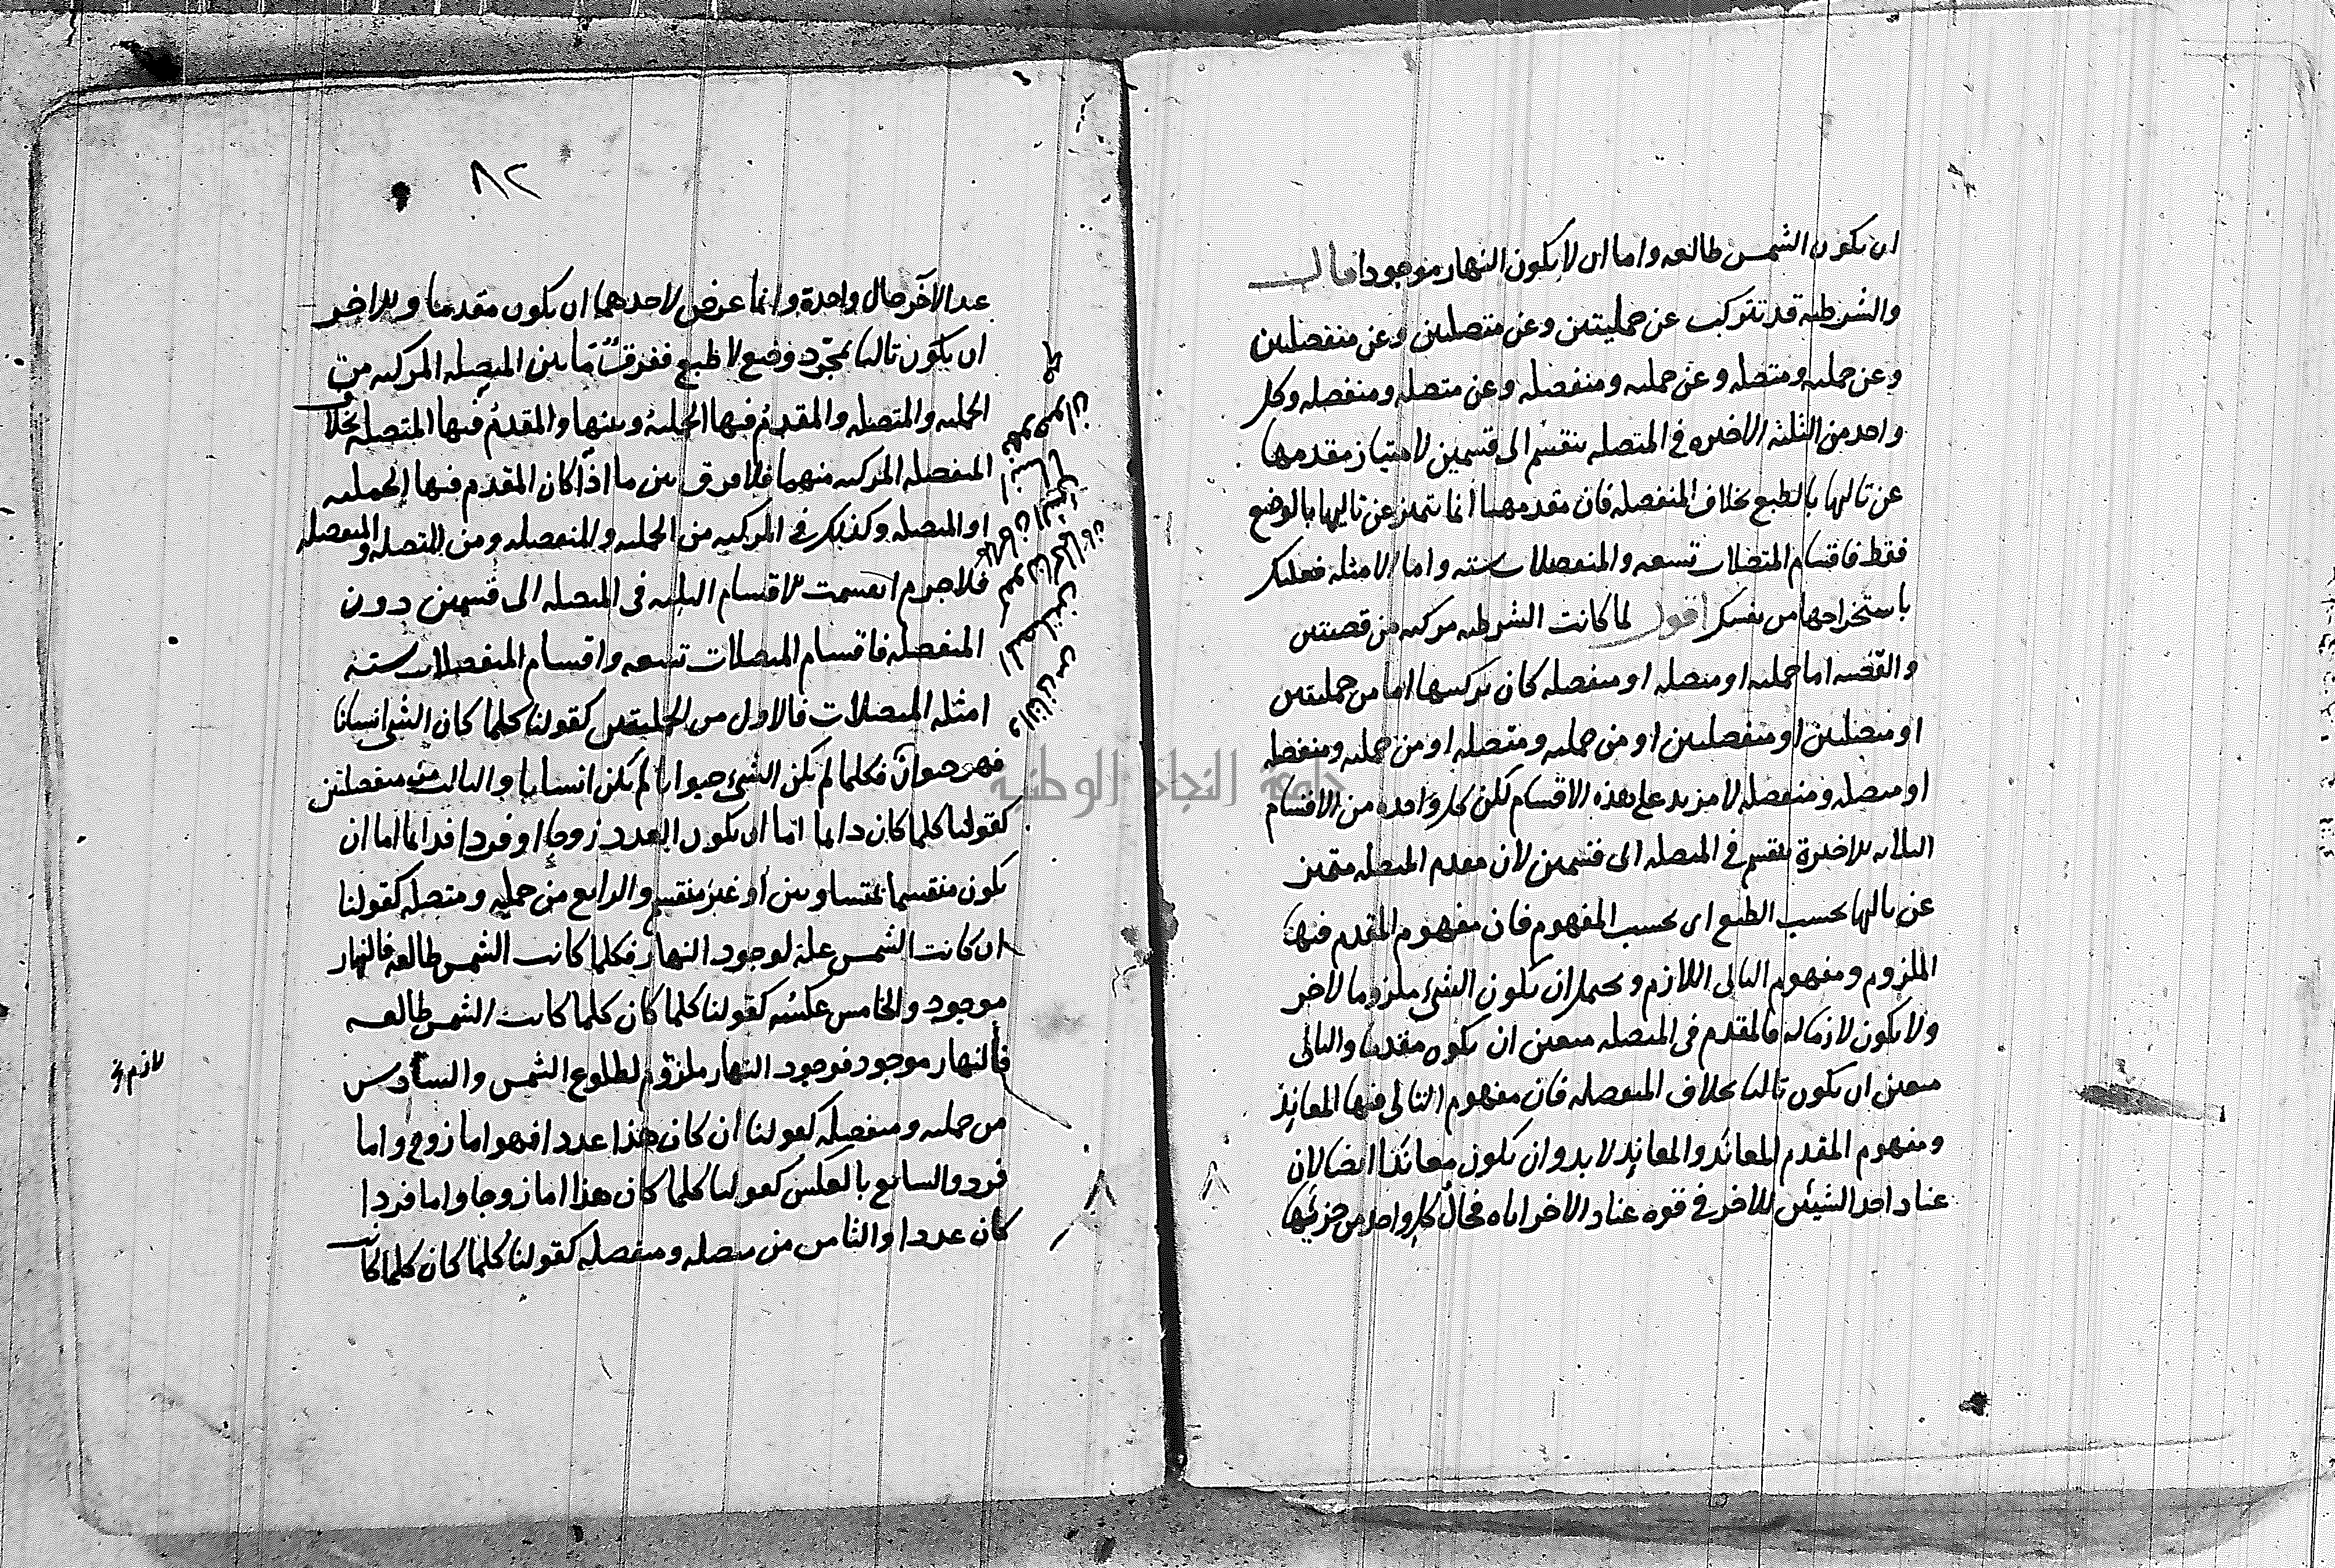 ان يكون الشمس طالعه واما ان لا يكون النهار موجودا قال
والشرطيه قد تتركب عن حمليتين وعن متصلتين وعن منفصلتين
وعن حمليه ومتصله وعن حمليه ومنفصله وعن متصله ومنفصله وكل
واحد من الثلثه الاخيره في المتصله ينقسم الى قسمين لامتياز مقدمها
عن تاليها بالطبع بخلاف المنفصله فان مقدمها انما يتميز عن تاليها بالوضع
فقط فاقسام المتصلات تسعه والمنفصلات سته واما الامثله فعليك
باستخراجها من نفسك اقول لما كانت الشرطيه مركبه من قضيتين
والقضيه اما حمليه او متصله او منفصله كان تركيبها اما من حمليتين
او متصلتين او منفصلتين او من حمليه ومتصله او من حمليه ومنفصله
او متصله ومنفصله لا مزيد على هذه الاقسام لكن كل واحده من الاقسام
الثلاثه الاخيرة ينقسم في المتصله الى قسمين لان مقدم المتصله متميز
عن تاليها بحسب الطبع اى بحسب المفهوم فان مفهوم المقدم فيها
الملزوم ومفهوم التالى اللازم ويحتمل ان يكون الشىء ملزوما لاخر
ولا يكون لازما له فالمقدم فى المتصله متعين ان يكون مقدما والتالى
متعين ان يكون تاليا بخلاف المنفصله فان مفهوم التالى فيها المعاند
ومفهوم المقدم المعاند والمعاند لا بد وان يكون معاندا ايضا لان
عناد احد الشيئين للاخر في قوه عناد الاخر اياه فحال كل واحد من جزئيها
٨٢
عند الآخر حال واحدة وانما عرض لاحدهما ان يكون مقدما وللاخر
ان يكون تاليا بمجرد وضع لا طبع ففرق ما بين المتصله المركبه من
الحمليه والمتصله والمقدم فيها الحملية وبينها والمقدم فيها المتصله بخلاف
المنفصله المركبه منهما فلا فرق بين ما اذا كان المقدم فيها الحمليه
او المتصله وكذلك في المركبه من الحمليه والمنفصله ومن المتصله والمنفصله
فلا جرم انقسمت الاقسام الثلثه فى المتصله الى قسمين دون
المنفصله فاقسام المتصلات تسعه واقسام المنفصلات سته
امثله المتصلات فالاول من الحمليتين كقولنا كلما كان الشى انسانا
فهو حيوان فكلما لم يكن الشىء حيوانا لم يكن انسانا والثالث من منفصلتين
كقولنا كلما كان دايما اما ان يكون العدد زوجا او فردا فدائما اما ان
يكون منقسما بمتساويين او غير منقسم والرابع من حمليه ومتصله كقولنا
ان كانت الشمس علة لوجود النهار فكلما كانت الشمس طالعه فالنهار
موجود والخامس عكسه كقولنا كلما كان كلما كانت الشمس طالعه
فالنهار موجود فوجود النهار ملزوم لطلوع الشمس والسادس
من حمليه ومنفصله كقولنا ان كان هذا عددا فهو اما زوج واما
فرد والسابع بالعكس كقولنا كلما كان هذا اما زوجا واما فردا
كان عددا والثامن من متصله ومنفصله كقولنا كلما كان كلما كانت
والثانى من المتصلتين
لازم خ
جامعة النجاح الوطنية